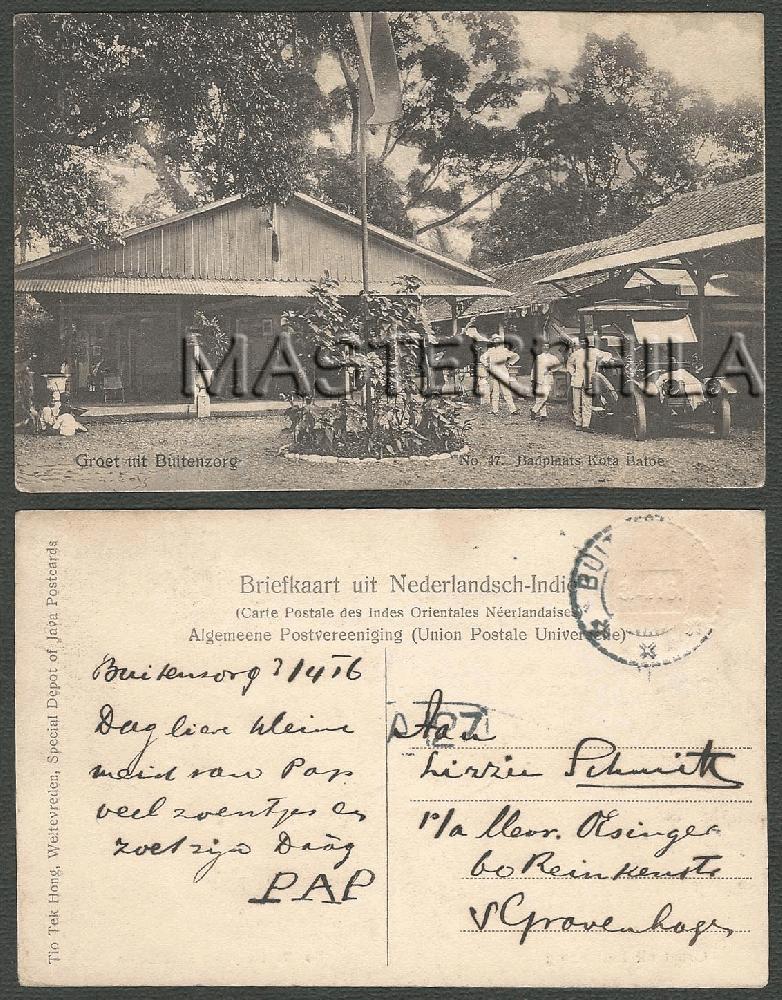 MASTERPHILA
Groet uit Buitenzorg
No. 47. Badplaats Kota Batoe
Tio Tek Hong, Weltevreden, Special Depot of Java Postcards
Briefkaart uit Nederlandsch-Indië
(Carte Postale des Indes Orientales Néerlandaises)
Algemeene Postvereeniging (Union Postale Universelle)
BUIT
Buitenzorg 3/4 16
Dag lieve kleine
meid van Pap
veel zoentjes en
zoet zijn Daag
PAP
27
Aan
Lizzie Schmitt
p/a Mevr.
60 Reinkenstr
s Gravenhage